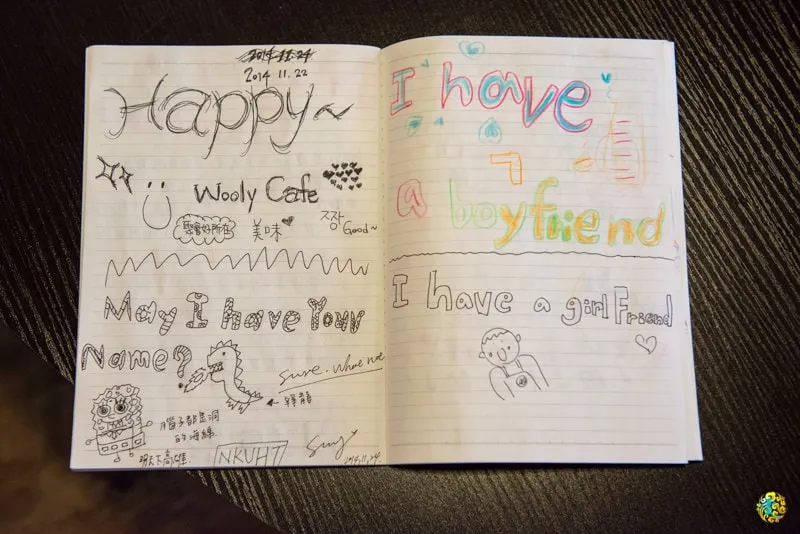 2014.11.24
2014 11.22
Happy~
Wooly Cafe
聚會好所在
美味
짱
Good~
May I have Your
Name?
Sure. Whae not
腦子都是洞
的海綿
NKUHT
2014.11.24
I have
a boyfriend
I have a girlFriend